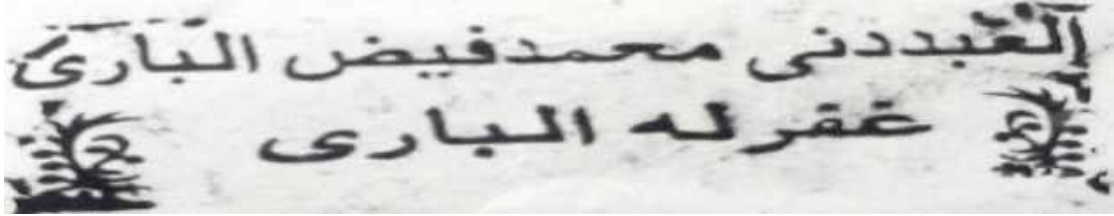 العبددنى محمدفيض البارى
غفرله البارى